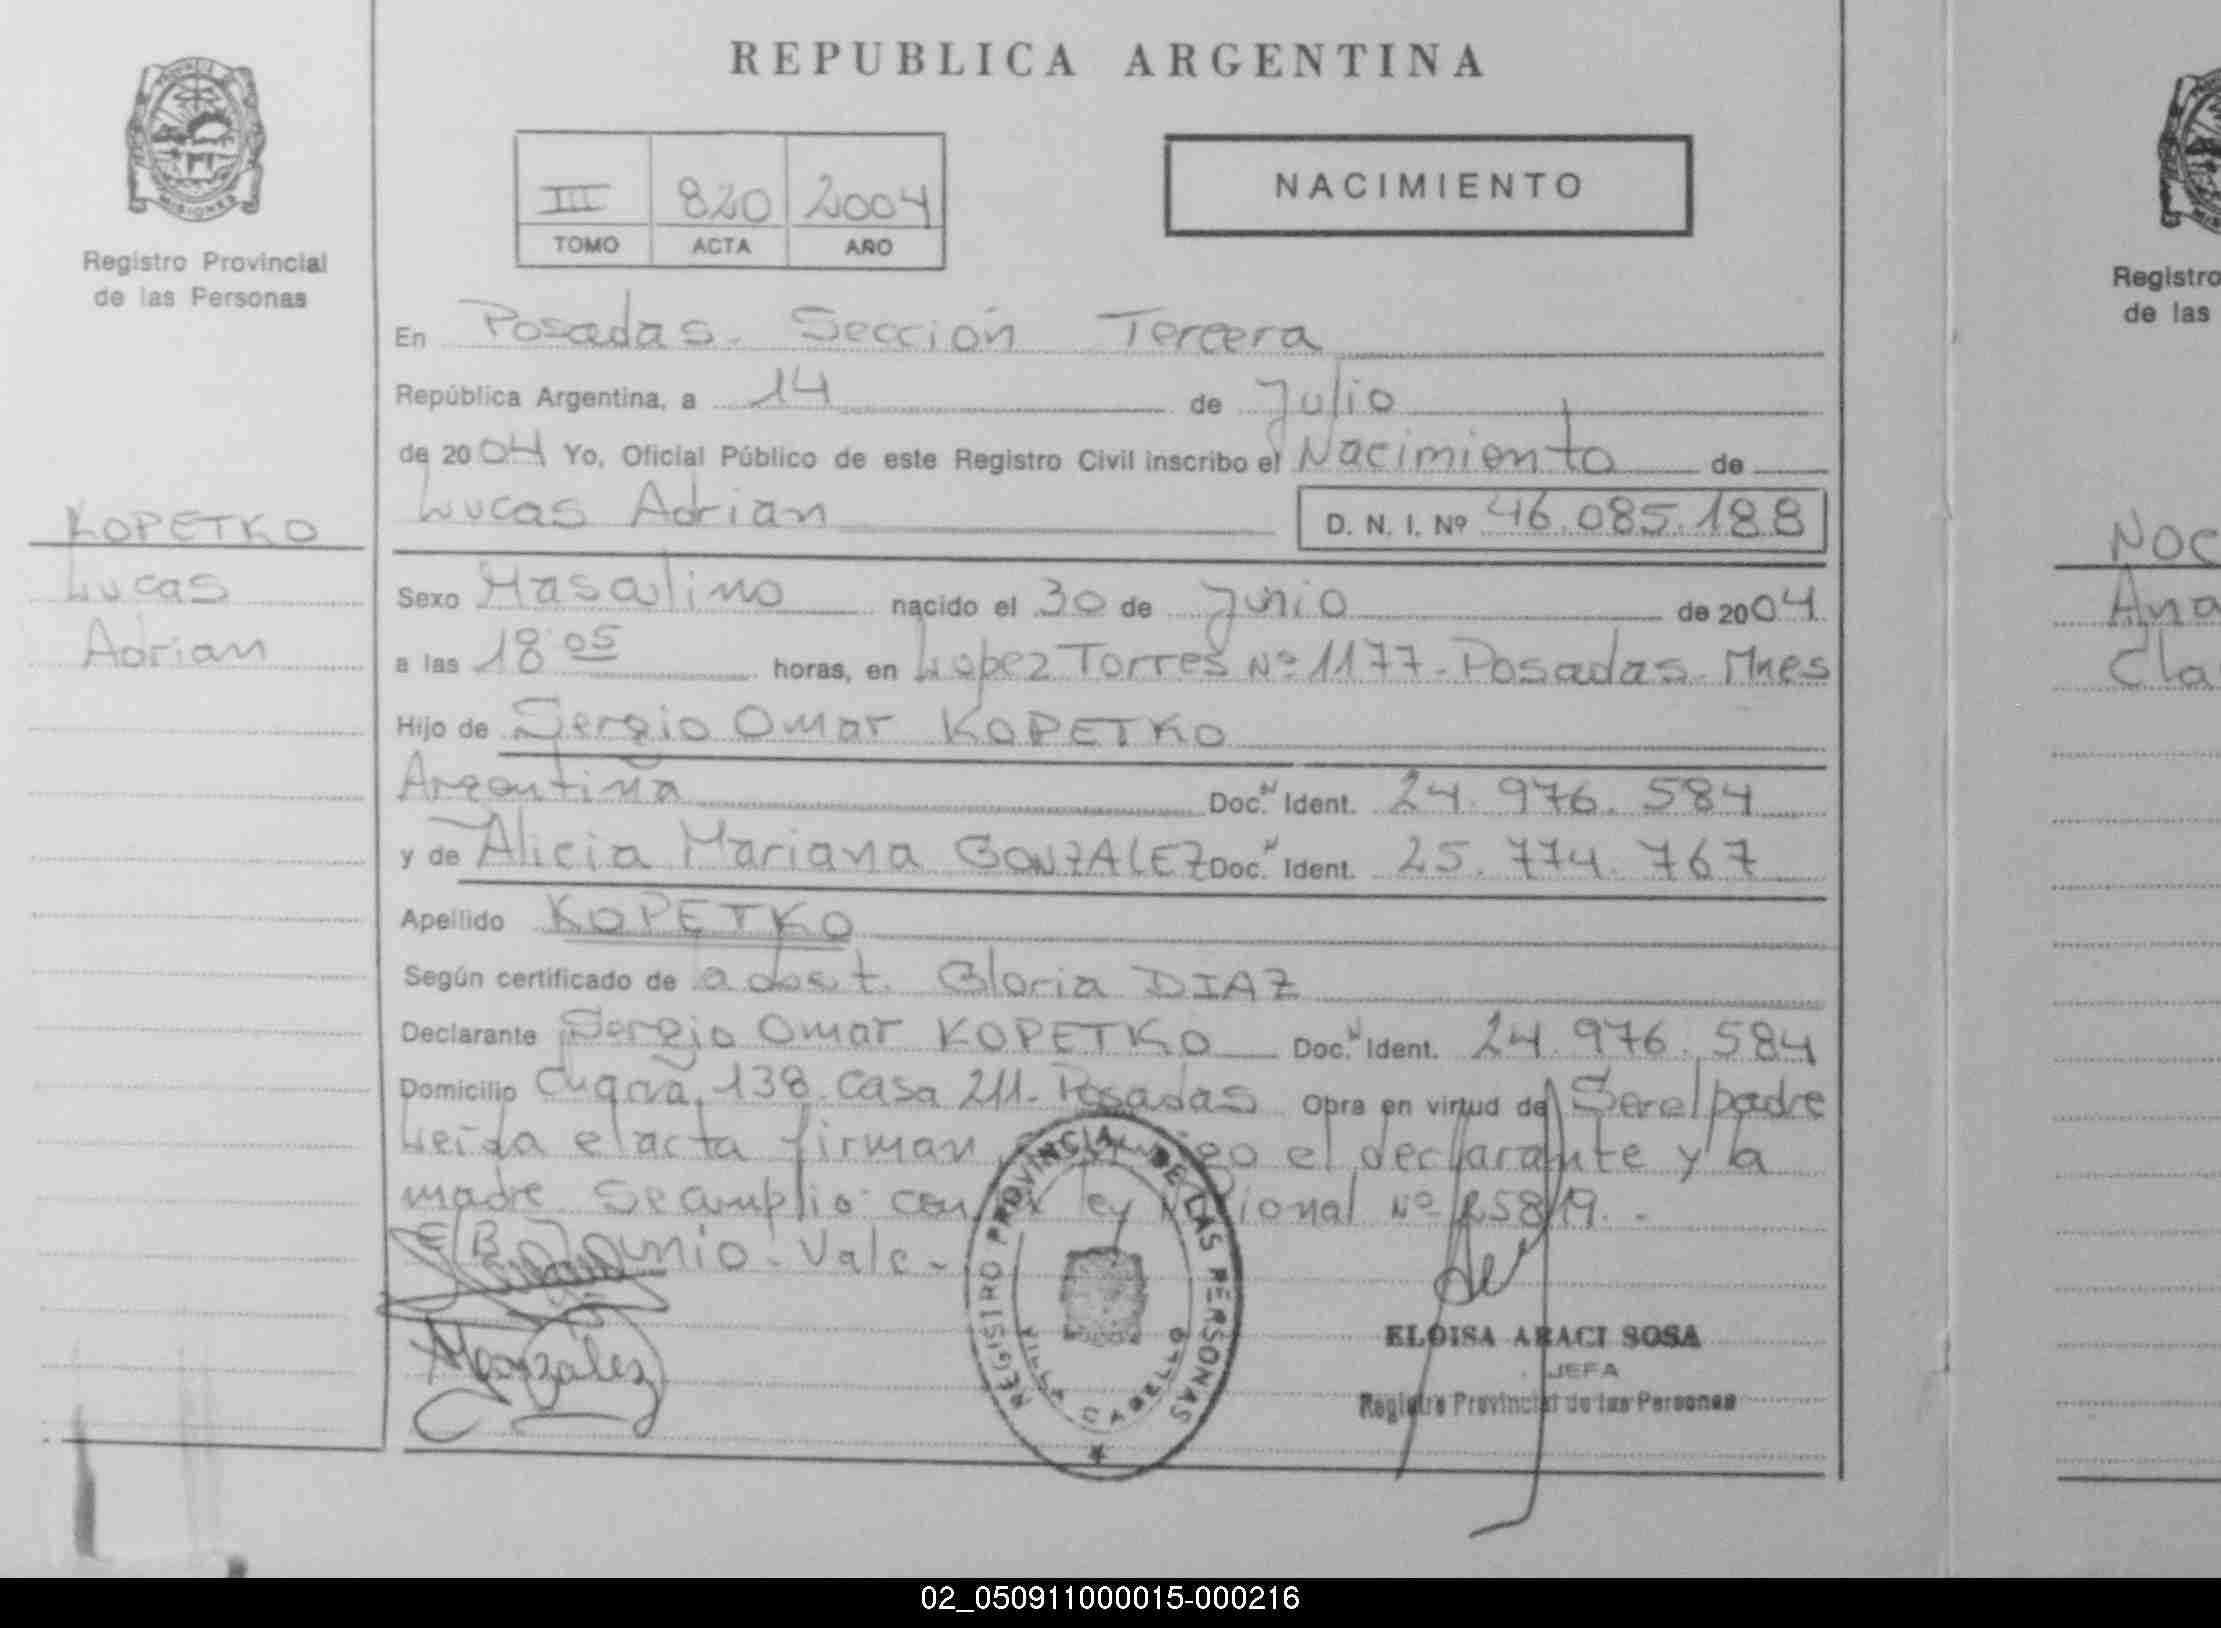 REPUBLICA ARGENTINA
MISIONES
Registro Provincial
de las Personas
III 820 2004
TOMO ACTA AÑO
NACIMIENTO
En Posadas. Sección Tercera
República Argentina, a 14 de Julio
de 2004 Yo, Oficial Público de este Registro Civil inscribo el Nacimiento de
Lucas Adrian D. N. I. Nº 46.085.188
KOPETKO
Lucas
Adrian
Sexo Masculino nacido el 30 de Junio de 2004.
a las 18 05 horas, en Lopez Torres Nº 1177 - Posadas - Mnes
Hijo de Sergio Omar KOPETKO
Argentina Doc. N Ident. 24.976.584
y de Alicia Mariana GONZALEZ Doc. N Ident. 25.774.767
Apellido KOPETKO
Según certificado de obst. Gloria DIAZ
Declarante Sergio Omar KOPETKO Doc. N Ident. 24.976.584
Domicilio 138. Casa 211. Posadas Obra en virtud de Ser el padre
Leída el acta firman el declarante y la
madre. Se cumplio con ley Nº 25819. -
Junio. Vale -
Agonzalez
REGISTRO PROVINCIAL DE LAS PERSONAS
VILLA CABELLO
ELOISA ARACI SOSA
JEFA
Registro Provincial de las Personas
Registro
de las
NOC
Ana
Cla
02_050911000015-000216